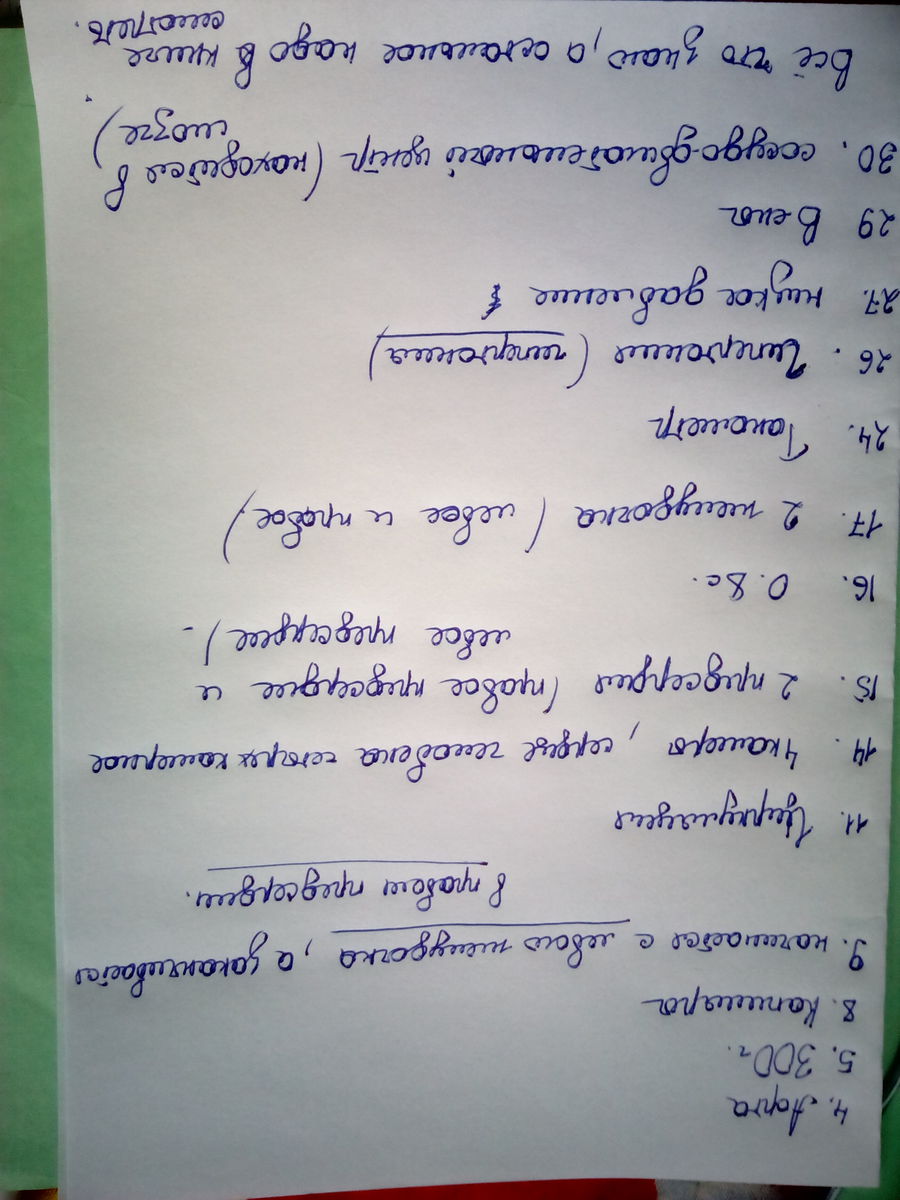 4. Аорта
5. 300г.
8. Капилляра
9. начинается с левого желудочка, а заканчивается
в правом предсердии.
11. Циркуляция
14. 4 камеры, сердце человека четырех камерное
15. 2 предсердия (правое предсердие и
левое предсердие) -
16. 0.8с.
17. 2 желудочка (левое и правое)
24. Танометр
26. Гипертония (гипертония)
27. низкое давление
29 Вена
30. сосудо-двигательный центр (находится в
мозге)
Всё что знаю, а остальное надо в книге
смотреть.